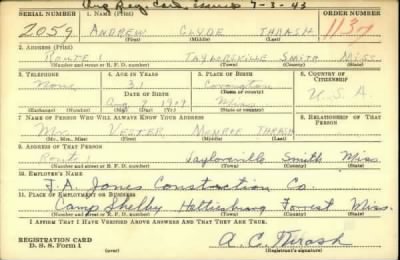 Org Reg. Card issued 7-3-43
SERIAL NUMBER 1. NAME (Print) ORDER NUMBER
2059 ANDREW CLYDE THRASH 1137
(First) (Middle) (Last)
2. ADDRESS (Print)
ROUTE 1 TAYLORSVILLE SMITH MISS.
(Number and street or R. F. D. number) (Town) (County) (State)
3. TELEPHONE 4. AGE IN YEARS 5. PLACE OF BIRTH 6. COUNTRY OF CITIZENSHIP
None 31 Covington
DATE OF BIRTH (Town or county)
Aug 9 1909 Miss. U.S.A.
(Exchange) (Number) (Mo.) (Day) (Yr.) (State or country)
7. NAME OF PERSON WHO WILL ALWAYS KNOW YOUR ADDRESS 8. RELATIONSHIP OF THAT PERSON
Mrs. VESTER MONROE THRASH
(Mr., Mrs., Miss) (First) (Middle) (Last)
9. ADDRESS OF THAT PERSON
Route 1 Taylorsville Smith Miss.
(Number and street or R. F. D. number) (Town) (County) (State)
10. EMPLOYER'S NAME
J. A. Jones Construction Co.
11. PLACE OF EMPLOYMENT OR BUSINESS
Camp Shelby Hattiesburg Forrest Miss.
(Number and street or R. F. D. number) (Town) (County) (State)
I AFFIRM THAT I HAVE VERIFIED ABOVE ANSWERS AND THAT THEY ARE TRUE.
REGISTRATION CARD
D. S. S. Form 1 A. C. Thrash